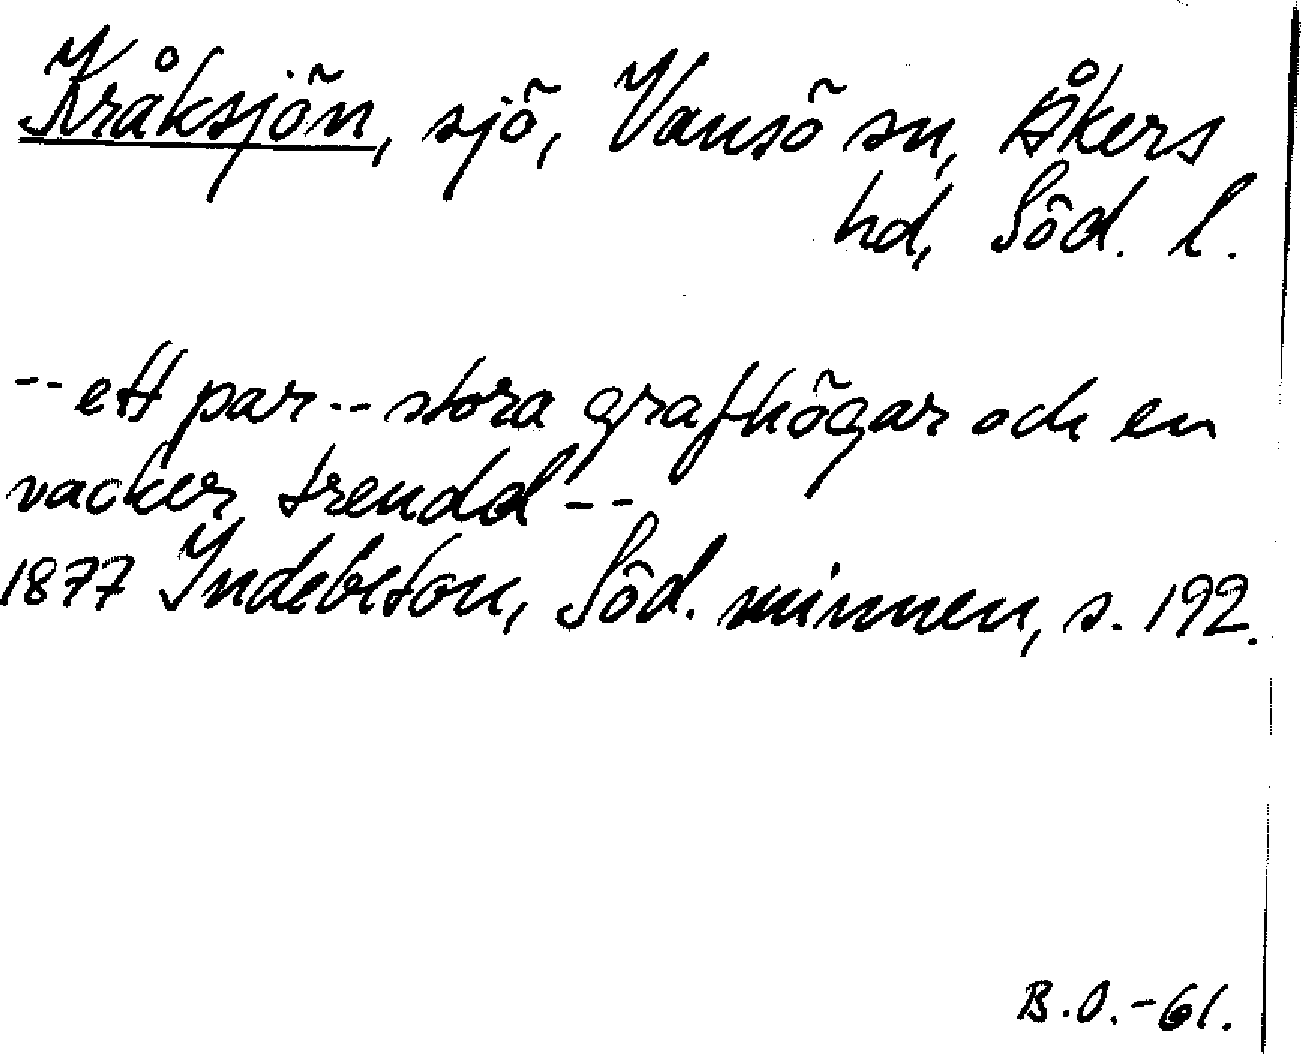 Kråksjön, sjö, Vansö sn, Åkers
hd, Söd. l.
-- ett par -- stora grafhögar och en
vacker, trendd --
1877 Indebetou, Söd. minnen, s. 192.
B.O. -61.